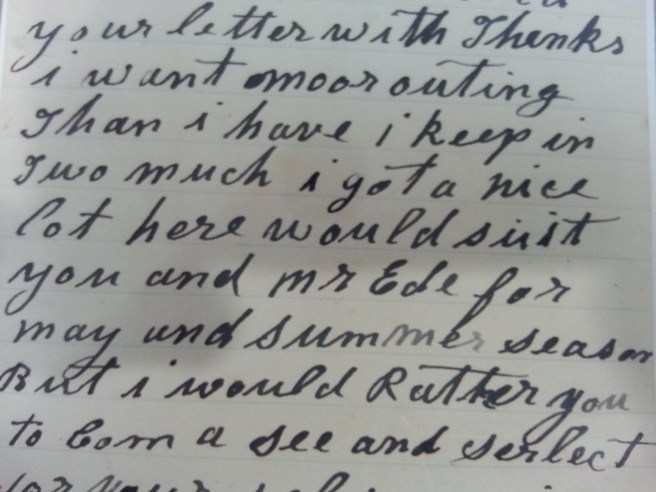 your letter with Thenks
i want moor outing
Than i have i keep in
Two much i got a nice
lot here would suit
you and mr Ede for
may and summer season
But i would Rather you
to Com a see and serlect
for your